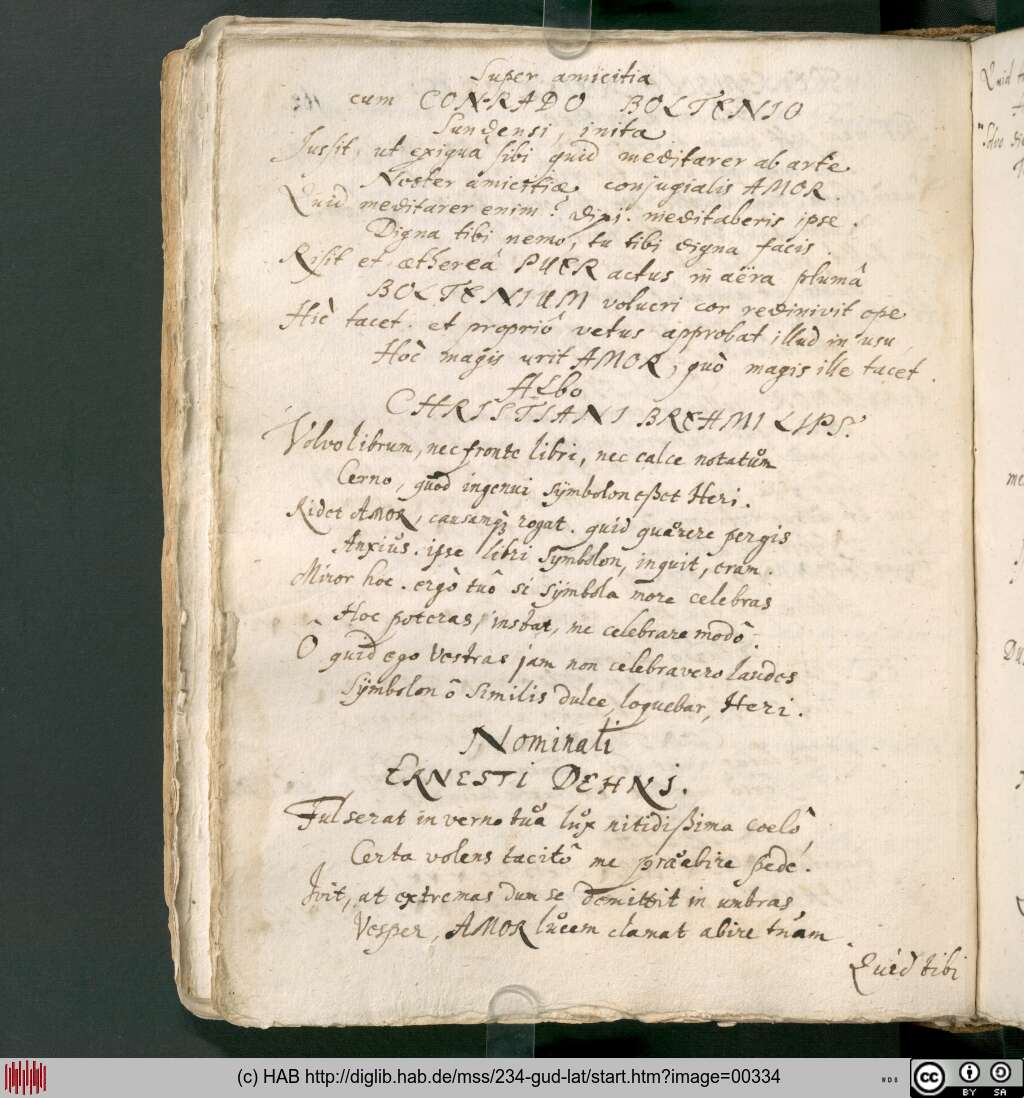 Super amicitia
cum CONRADO BOLTENIO
Sundensi, inita
Jussit, ut exiguâ sibi quid meditarer ab arte
Noster amicitiæ conjugialis AMOR.
Quid meditarer enim? dixi. meditaberis ipse.
Digna tibi nemo, tu tibi digna facis.
Risit et æthereâ PUER actus in aëra plumâ
BOLTENIUM volucri cor redinivit ope
Hic tacet. et propriô vetus approbat illud in usu,
Hoc magis urit AMOR, quò magis ille tacet.
Albo
CHRISTIANI BREHMI LIPS.
Volvo librum, nec fronte libri, nec calce notatům
Cerno, quod ingenui sÿmbolon eßet Heri.
Ridet AMOR, causamq; rogat. quid quærere pergis
Anxiůs. ipse libri Sÿmbolon, inquit, eram.
Miror hoc. ergô tuô si sÿmbola more celebras
Hoc poteras, instat, me celebrare modô.
Ô quid ego vestras jam non celebravero laudes
Sÿmbolon ô similis dulce, loquebar, Heri.
Nominali
ERNESTI DEHNI.
Fulserat in verno tůa lůx nitidißima coelô
Certa volens tacitô me præabire pede.
Ivit, at extremas dum se demittit in umbras
Vesper, AMOR lůcem clamat abire tuam.
Quid tibi
Quid
(c) HAB http://diglib.hab.de/mss/234-gud-lat/start.htm?image=00334
WDB
cc BY SA